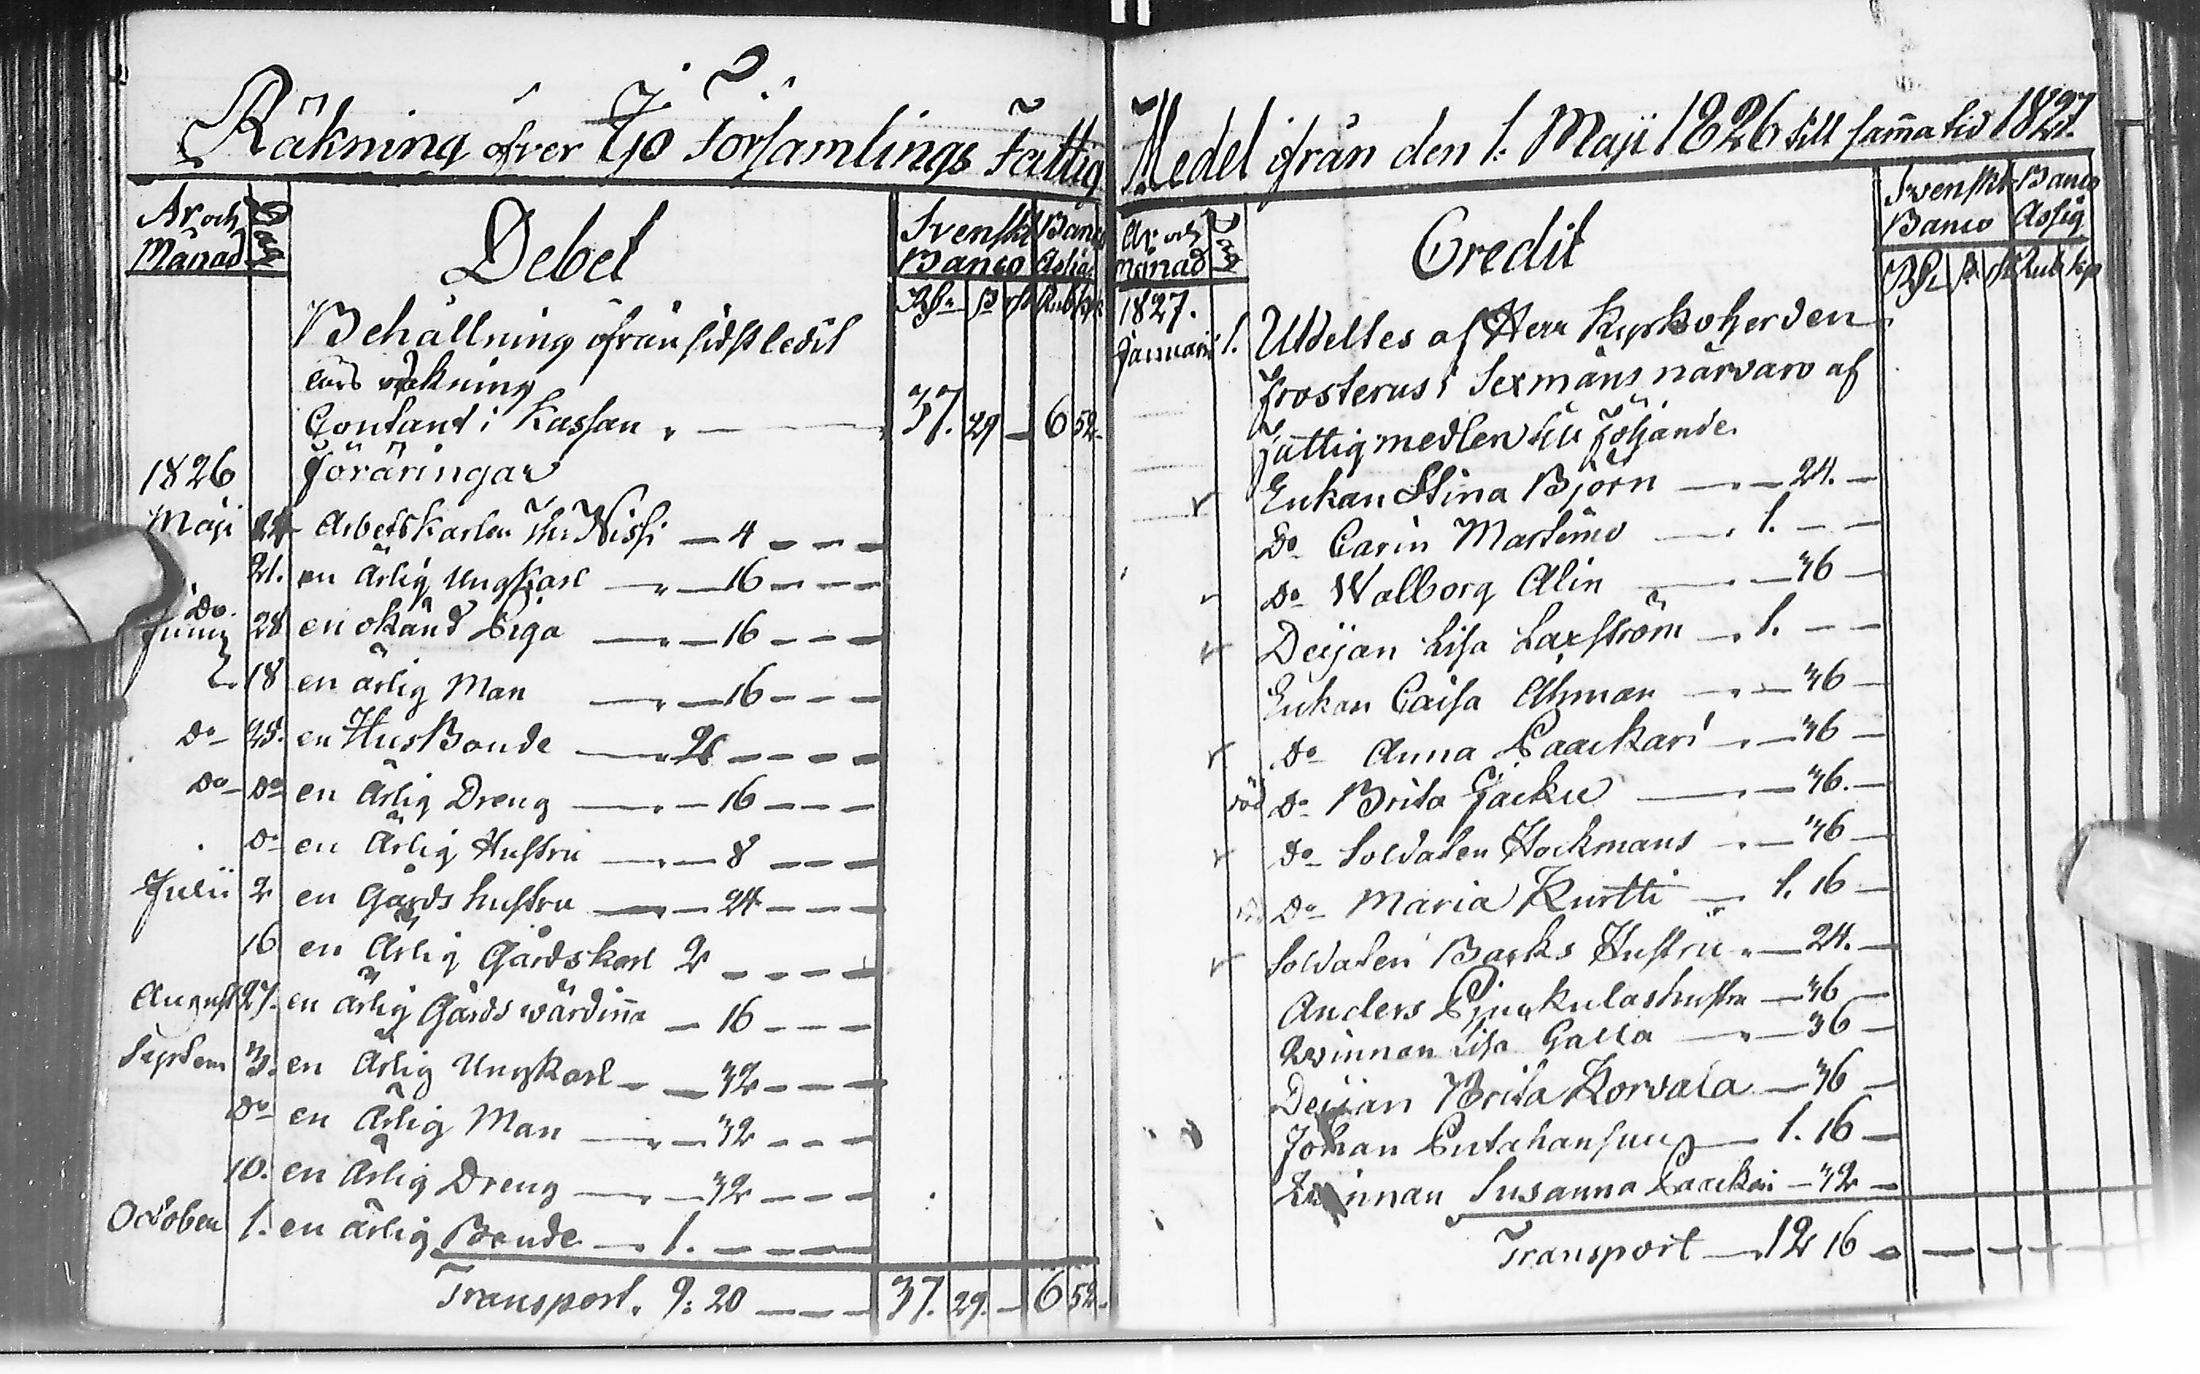 Räkning öfver Ijo Församlings Fattig
År och Månad Dag Debet Svenskt Banco Banco Assig.
Rdr ß rst Rub kop
Behållning ifrån sidstledit
års räkning
Contant i Kassan 37. 29 — 6 52
1826 Föräringar
Maji Arbetskarlen Nissi — 4 — — —
21. en Ärlig Ungkarl — 16 — — —
Do 28 en okänd Piga — 16 — — —
Junii 18 en ärlig Man — 16 — — —
Do 25. en HusBonde — 2 — — — —
Do Do en Ärlig Dreng — 16 — — —
Do en Ärlig Hustru — 8 — — —
Julii 2 en Gårds hustru — 24 — — —
16 en Ärlig Gårdskarl 2 — — — —
August 27. en ärlig Gårds wärdinna — 16 — — —
Septem 3. en Ärlig Ungkarl — 32 — — —
Do en Ärlig Man — 32 — — —
10. en Ärlig Dreng — 32 — — —
October 1. en ärlig Bonde — 1. — — —
Transport. 9: 20 — — — 37. 29. — 6 52.
Medel ifrån den 1. Maji 1826 till samma tid 1827.
År och Månad Dag Credit Svenskt Banco Banco Assig
Rdr ß rst Rub kop
1827.
Januarii 1. Utdeltes af Herr Kyrkoherden
Frosterus i Sexmäns närvaro af
Fattigmedlen till följande
Enkan Stina Björn — 24. —
Do Carin Martimo — 1. — —
Do Walborg Alin — 36 —
Deijan Lisa Laxström — 1. — —
Enkan Caisa Åhman — 36 —
Do Anna Paackari — 36 —
död Do Brita Jacku — 36. —
Do Soldaten Hockmans — 36 —
Do Maria Kurtti — 1. 16 —
Soldaten Barks Hustru — 24. —
Anders hustru — 36 —
Qvinnan Lisa Galla — 36 —
Deijan Brita Korvala — 36 —
Johan — 1. 16 —
Qvinnan Susanna Paackari — 32 —
Transport — 12 16 — — — — —